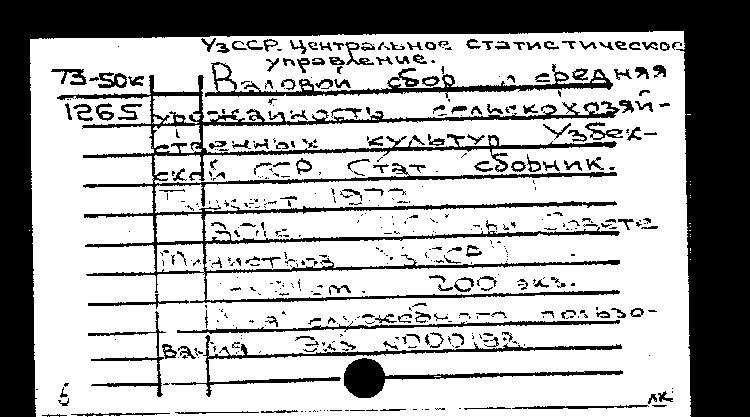 УзССР. Центральное статистическое
управление.
73-50к Валовой сбор и средняя
1265 урожайность сельскохозяй-
ственных культур Узбек-
ской ССР. Стат. сборник.
Ташкент. 1972
301с. (ЦСУ при Совете
Министров УзССР)
21см. 200 экз.
Для служебного пользо-
вания. Экз. №000192
б лк